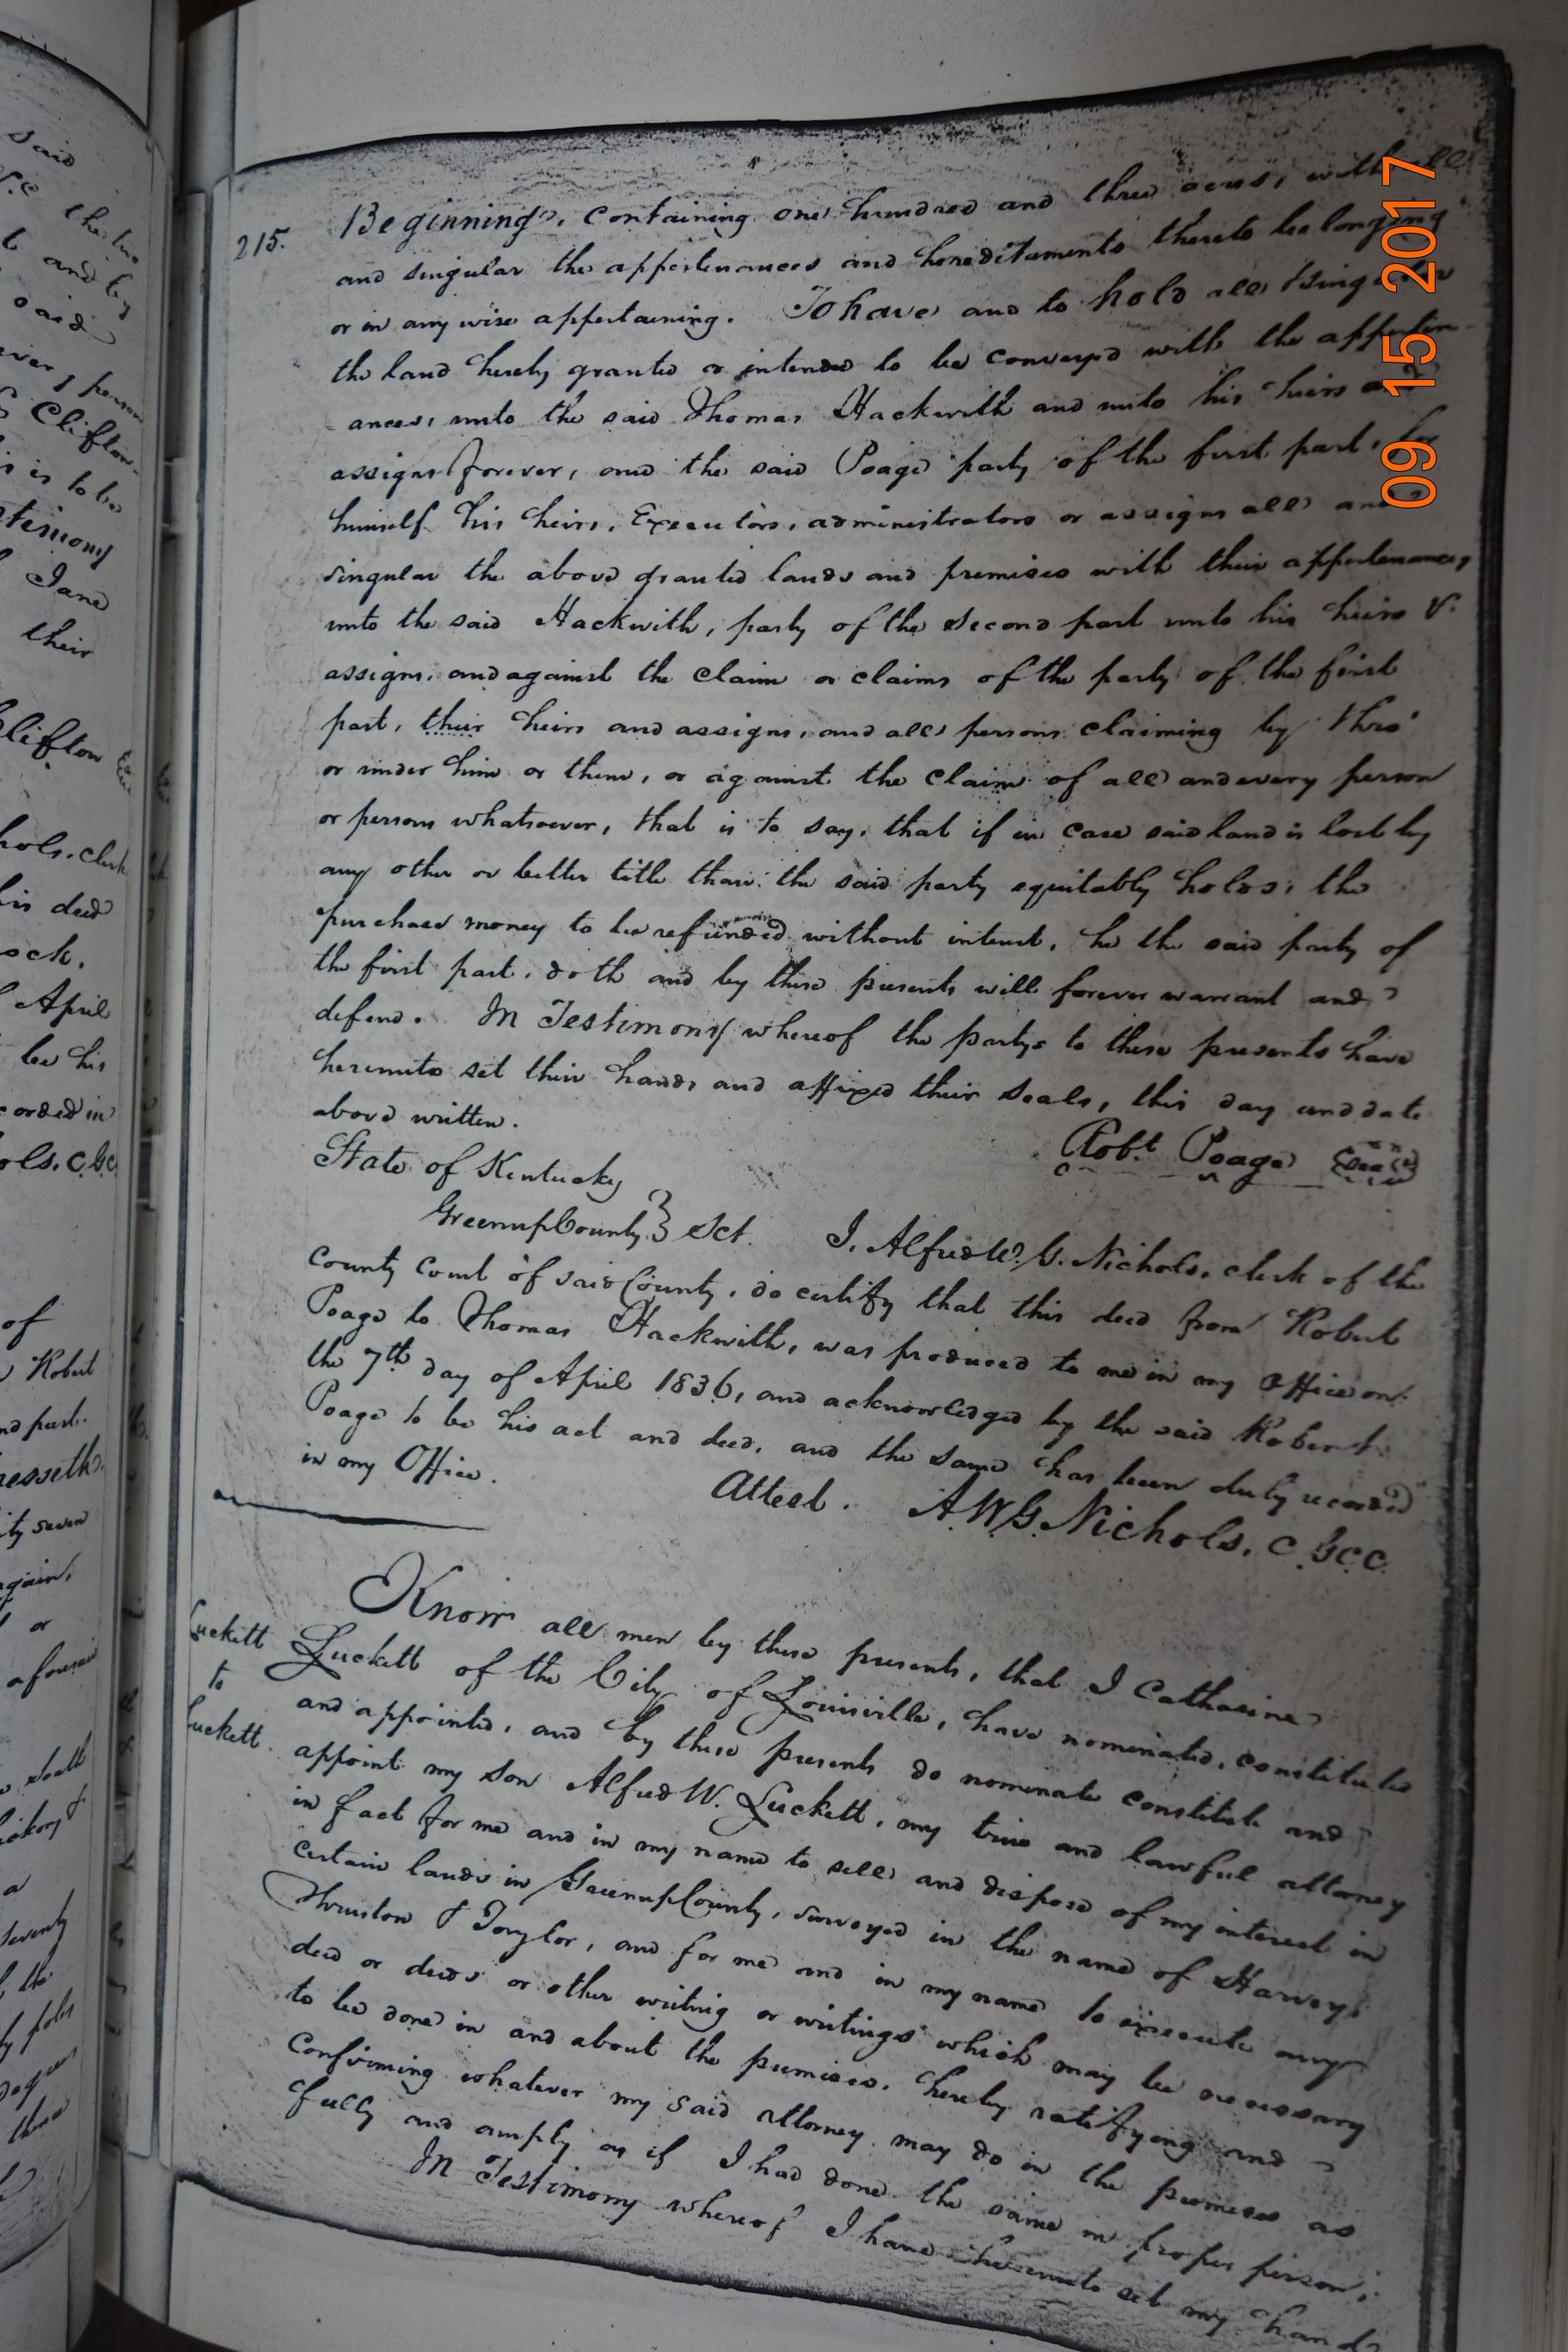 said
the
and by
said
person
Clifton
is to be
Testimony
Jane
their
Clifton
clerk
his deed
April
be his
C.G.C.
of
Robert
nd part.
or
aforesaid
a
seventy
the
poles
215.
Beginning, containing one hundred and three acres, with all
and singular the appertenances and hereditaments thereto belonging
or in any wise appertaining. To have and to hold all & singular
the land hereby granted or intended to be conveyed with the appertin-
ances, unto the said Thomas Hackwith and unto his heirs and
assigns forever, and the said Poage party of the first part, for
himself his heirs, Executors, administrators or assigns all and
singular the above granted lands and premises with their appertenances,
unto the said Hackwith, party of the second part unto his heirs &
assigns, and against the claim or claims of the party of the first
part, their heirs and assigns, and all persons claiming by thro'
or under him or them, or against the claim of all and every person
or persons whatsoever, that is to say, that if in case said land is lost by
any other or better title than the said party equitably holds, the
purchase money to be refunded without interest, he the said party of
the first part, doth and by these presents will forever warrant and
defend. In Testimony whereof the partys to these presents have
hereunto set their hands and affixed their seals, this day and date
above written.
Robt Poage {Seal}
State of Kentucky
Greenup County } Sct. I, Alfred W. G. Nichols, clerk of the
County Court of said County, do certify that this deed from Robert
Poage to Thomas Hackwith, was produced to me in my Office on
the 7th day of April 1836, and acknowledged by the said Robert
Poage to be his act and deed, and the same has been duly recorded
in my Office.
Attest. A.W.G. Nichols, C.G.C.C.
Luckett
to
Luckett.
Know all men by these presents, that I Catharine
Luckett of the City of Louisville, have nominated, constituted
and appointed, and by these presents do nominate constitute and
appoint my son Alfred W. Luckett, my true and lawful attorney
in fact for me and in my name to sell and dispose of my interest in
certain lands in Greenup County, surveyed in the name of Harvey,
Thruston & Taylor, and for me and in my name to execute any
deed or deeds or other writing or writings which may be necessary
to be done in and about the premises, hereby ratifying and
Confirming whatever my said attorney may do in the premises as
fully and amply as if I had done the same in proper person;
In Testimony whereof I have hereunto set my hand
09 15 2017